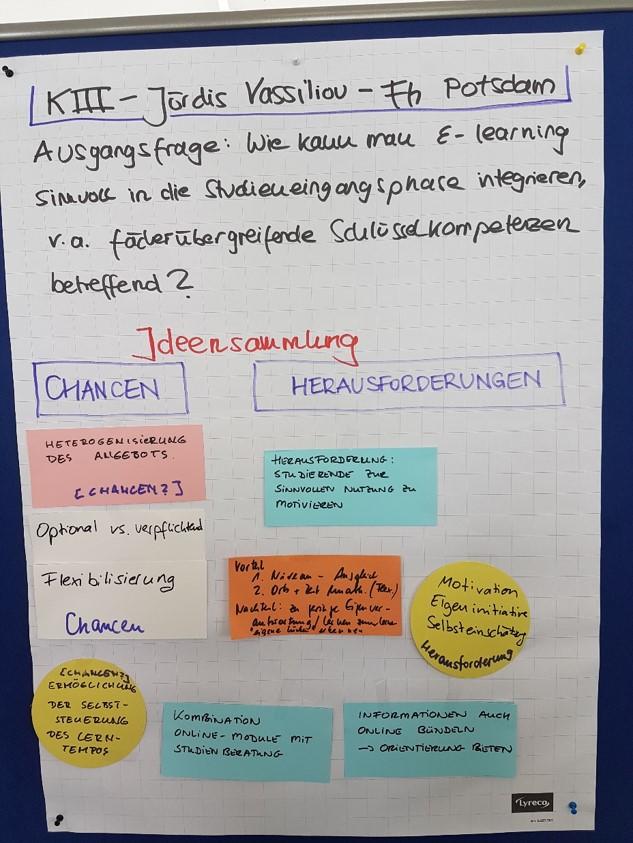 KIII – Jördis Vassiliou – Fh Potsdam
Ausgangsfrage: Wie kann man E-learning
sinnvoll in die Studieneingangsphase integrieren,
v.a. fächerübergreifende Schlüsselkompetenzen
betreffend?
Ideensammlung
CHANCEN
HERAUSFORDERUNGEN
HETEROGENISIERUNG
DES ANGEBOTS.
[CHANCEN?]
Optional vs. verpflichtend
Flexibilisierung
Chancen
[CHANCEN?]
ERMÖGLICHUNG
DER SELBST-
STEUERUNG
DES LERN-
TEMPOS
HERAUSFORDERUNG:
STUDIERENDE ZUR
SINNVOLLEN NUTZUNG ZU
MOTIVIEREN
Vorteil
1. Niveau - Ausgleich
2. Orts + Zeit
Nachteil: zu geringe Eigenver-
antwortung/
Motivation
Eigeninitiative
Selbsteinschätzung
Herausforderung
KOMBINATION
ONLINE-MODULE MIT
STUDIENBERATUNG
INFORMATIONEN AUCH
ONLINE BÜNDELN
→ ORIENTIERUNG BIETEN
Lyreco